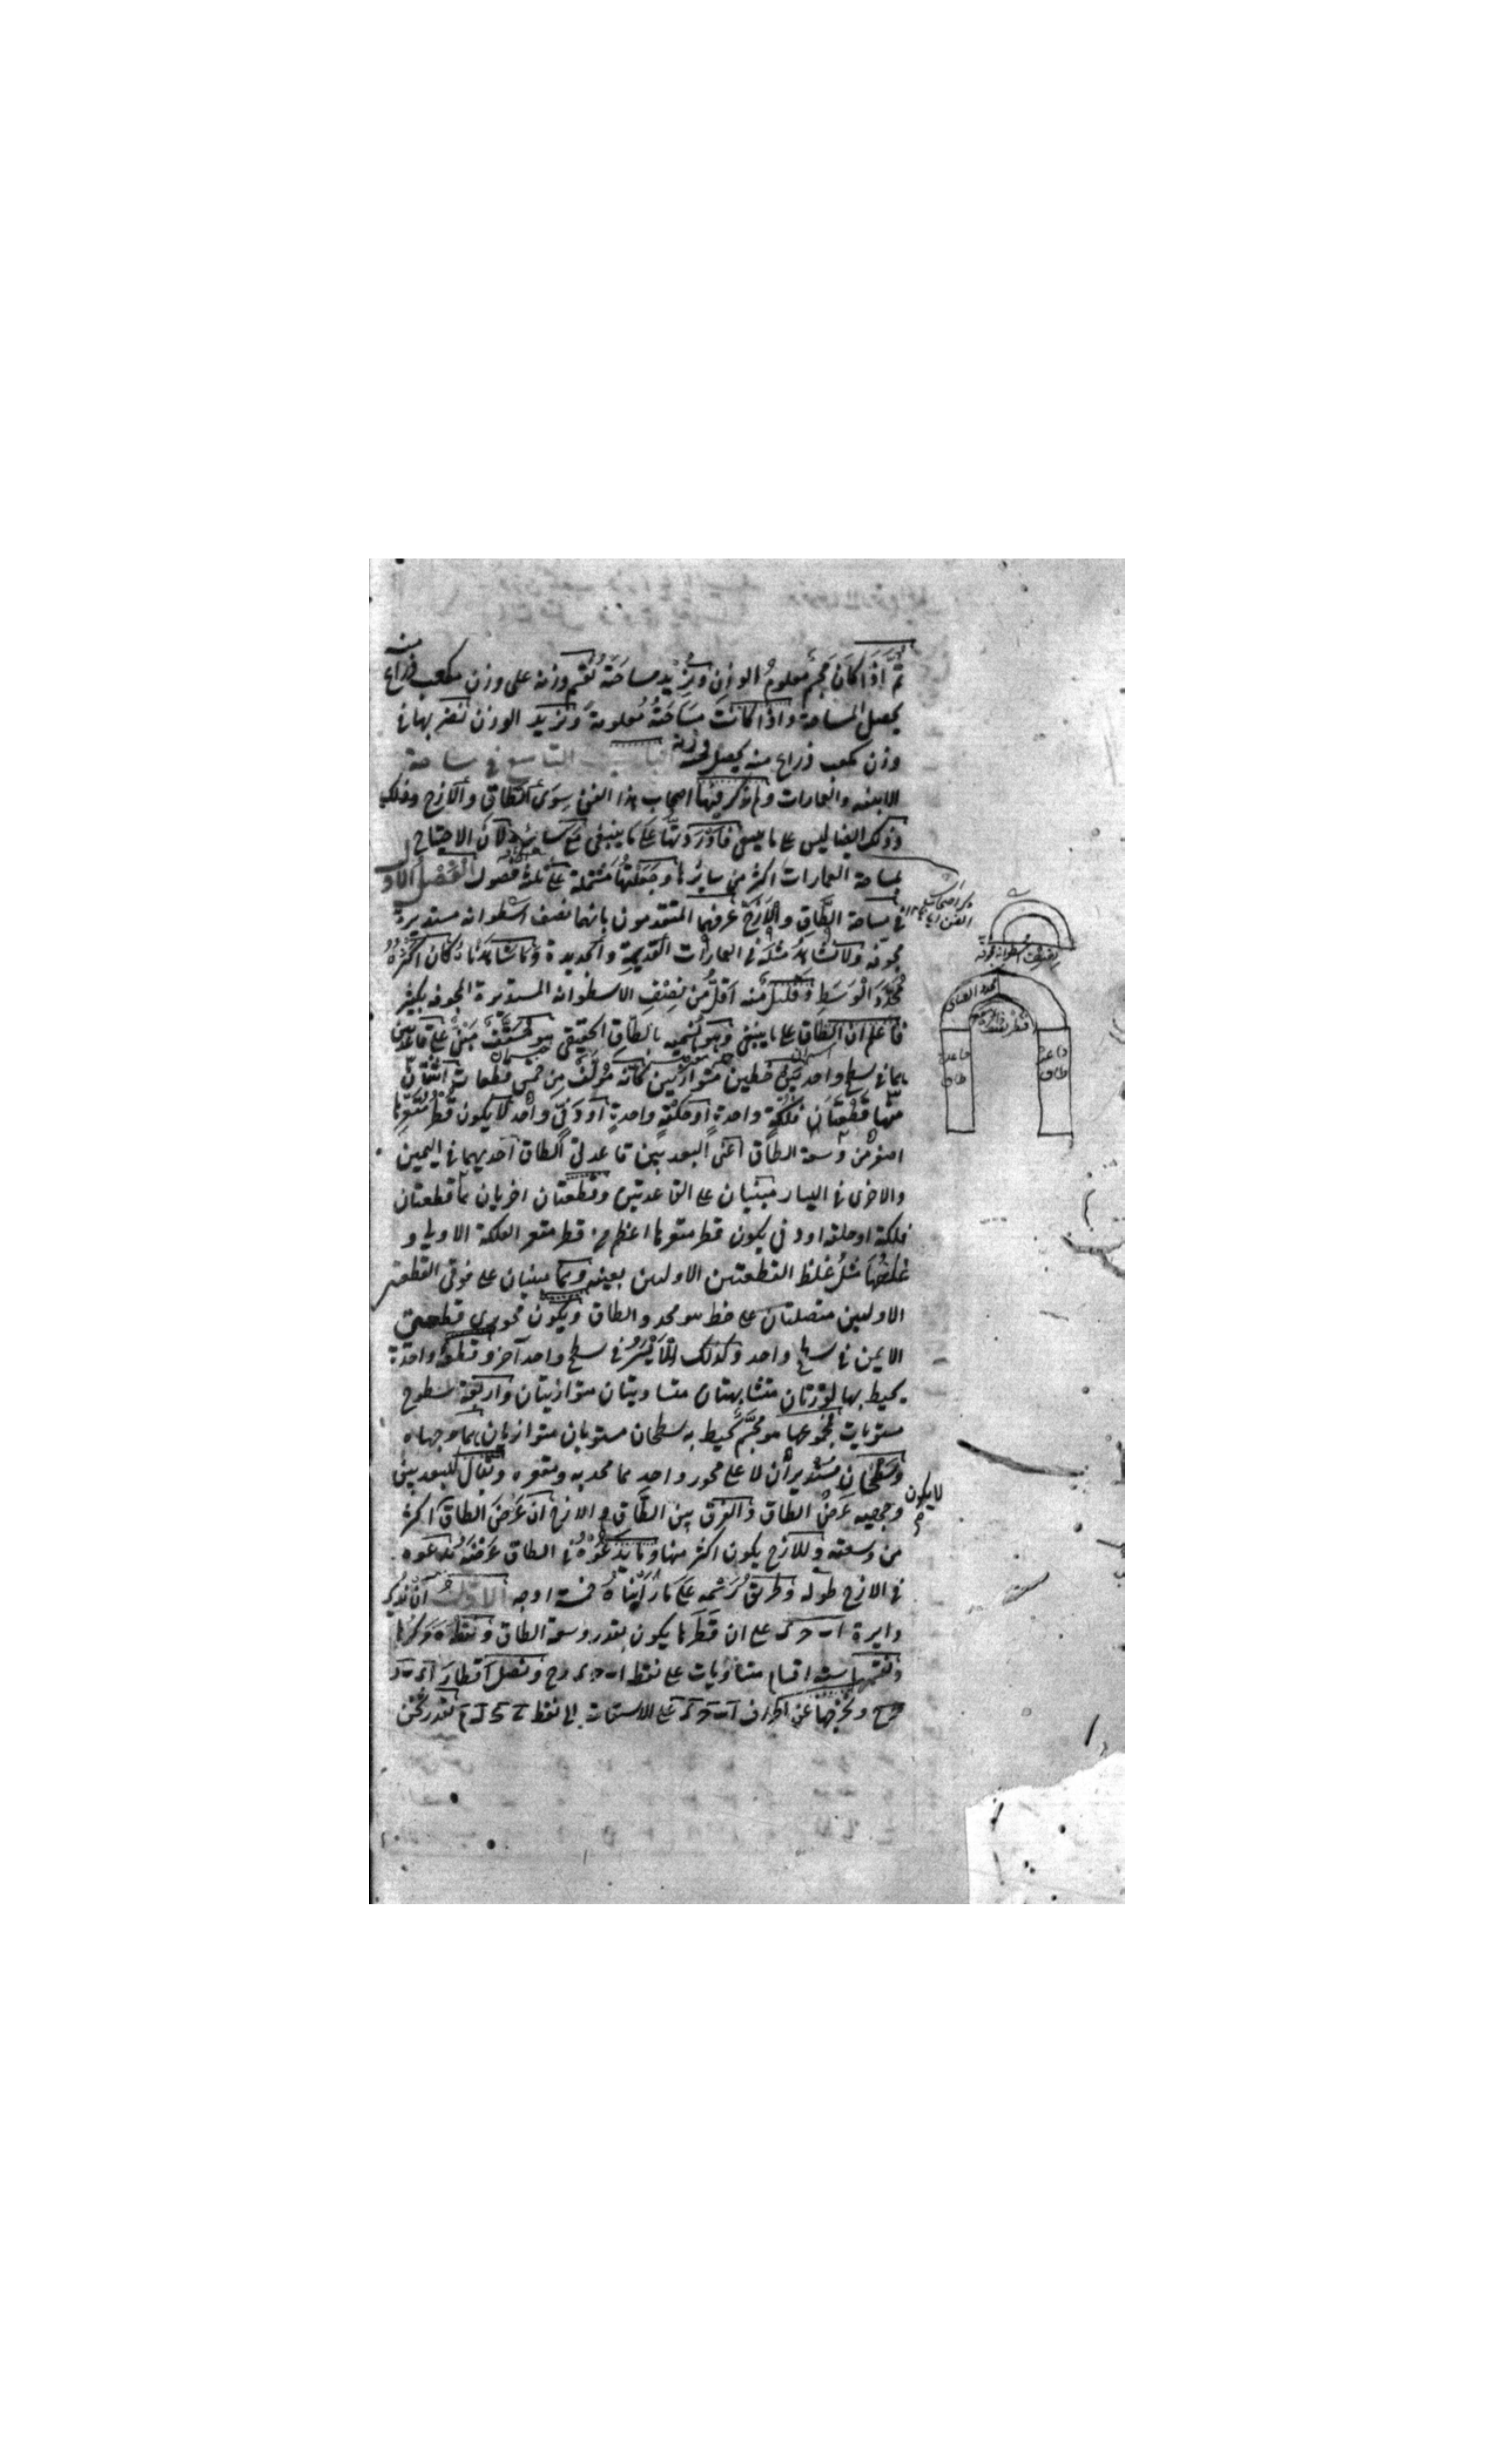 ثُمَّ إذا كان مجسم معلومُ الوزن ونُريد مساحتَه نُقسّم وزنه على وزن مكعب ذراع منه
يحصل المساحة واذا كانت مساحتُه معلومة ونريد الوزن نضربها في
وزن مكعب ذراع منه يحصل وزنه الباب التاسع في مساحة
الابنيه والعمارات ولم يذكر فيها اصحاب هذا الفن سوى الطاق والازج وذلك
وذلك ايضا ليس على ما ينبغي فاوردتها على ما ينبغي مع سائره لان الاحتياج
بمساحة العمارات اكثر من سايرها وجعلتها مشتملة على ثلثة فصول الفصل الاول
في مساحة الطاق والازج عرفهما المتقدمون بانهما نصف اسطوانه مستديرة
مجوفه ولا نشاهد مثله في العمارات القديمة والجديدة وما شاهدناه كان اكثره
محدد الوسط وقليل منه اقل من نصف الاسطوانه المستديرة المجوفه بكثير
فاعلم ان الطاق على ما ينبغي وهو نسميه بالطاق الحقيقي هو مسقف مبنى على قاعدتين
هما في سطح واحد بين خطين متوازيين كانه مؤلف من خمس قطعات اثنتان
منها قطعتان فلكة واحدة او حلقة واحدة او دفى واحد لا يكون قطر مقعرها
اصغر من وسعة الطاق اعنى البعد بين قاعدتى الطاق احديهما في اليمين
والاخرى في اليسار مبنيان على القاعدتين وقطعتان اخريان هما قطعتان
فلكة او حلقه او دفى يكون قطر مقعرها اعظم من قطر مقعر الفلكة الاولى و
غلظها مثل غلظ القطعتين الاوليين بعينه وهما مبنيان على فوقى القطعتين
الاوليين متصلتان على خط هو محدد الطاق ويكون محورى قطعتى
الايمن في سطح واحد وكذلك للايسر في سطح واحد آخر وقطعة واحدة
يحيط بها لوزتان متشابهتان متساويتان متوازيتان واربعة سطوح
مستويات فمجموعها هو مجسم يحيط به سطحان مستويان متوازيان هما وجهاه
وسطحان مستديران لا على محور واحد هما محدبه ومقعره ويقال للبعد بين
وجهيه عرض الطاق والفرق بين الطاق والازج ان عرض الطاق لا يكون اكثر
من وسعته وللازج يكون اكثر منها وما يدعوه في الطاق عرضه يدعوه
في الازج طوله وطريق رسمه على ما رايناه خمسة اوجه الاول ان ندير
دايرة ا ب ح د على ان قطرها يكون بقدر وسعة الطاق ونقطه ه مركزها
ونقسمها ستة اقسام متساويات على نقط ونصل اقطار
ونخرجها عن اطراف على الاستقامة الى نقط بقدر ثخن
نصف اسطوانه مجوفه
محدد الطاق
قاعدة
طاق
قاعدة
طاق